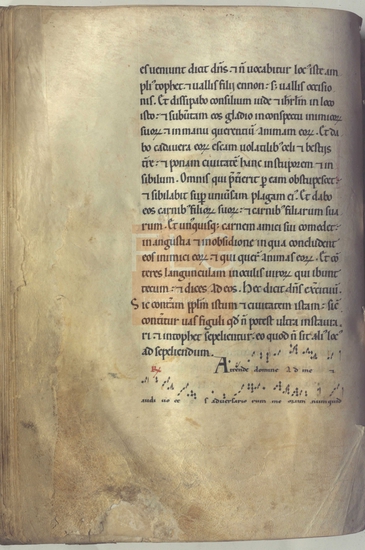 es ueniunt dicit dñs. ⁊ ñ uocabitur loc᷒ iste am
pli᷒ tophet. ⁊ uallis filii ennon. s; uallis occisio
nis. Et dissipabo consilium iude ⁊ ihrlm̄ in loco
isto. ⁊ subũtam eos gladio in conspectu inimicoꝝ
suoꝝ. ⁊ in manu querentiũ animam eoꝝ. Et da
bo cadauera eoꝝ escam uolatilib᷒ celi ⁊ bestiis
tr̃e. ⁊ ponam ciuitatē hanc in stuporem ⁊ in
sibilum. Omnis qui p̃terierit p eam obstupescet.
⁊ sibilabit sup uniũsam plagam ei᷒. Et dabo
eos carnib᷒ filioꝝ suoꝝ. ⁊ carnib᷒ filiarum sua
rum. Et unusquisq; carnem amici sui comedet.
in angustia ⁊ in obsidione in qua concludent
eos inimici eoꝝ. ⁊ qui quert̃ animas eoꝝ. Et cõ
teres langunculam in oculis uiroꝝ qui ibunt
tecum. ⁊ dices ad eos. Hec dicit dñs exercituũ.
Sic conteram pplm̄ istum ⁊ ciuitatem istam. sic̃
conterĩtur uas figuli qđ ñ potest ultra instaura
ri. ⁊ in tophet sepelientur. eo quod ñ sit ali᷒ loc᷒
ad sepeliendum.
℟ Attende domine ad me ⁊
audi uo ce s aduersario rum me orum nunquid